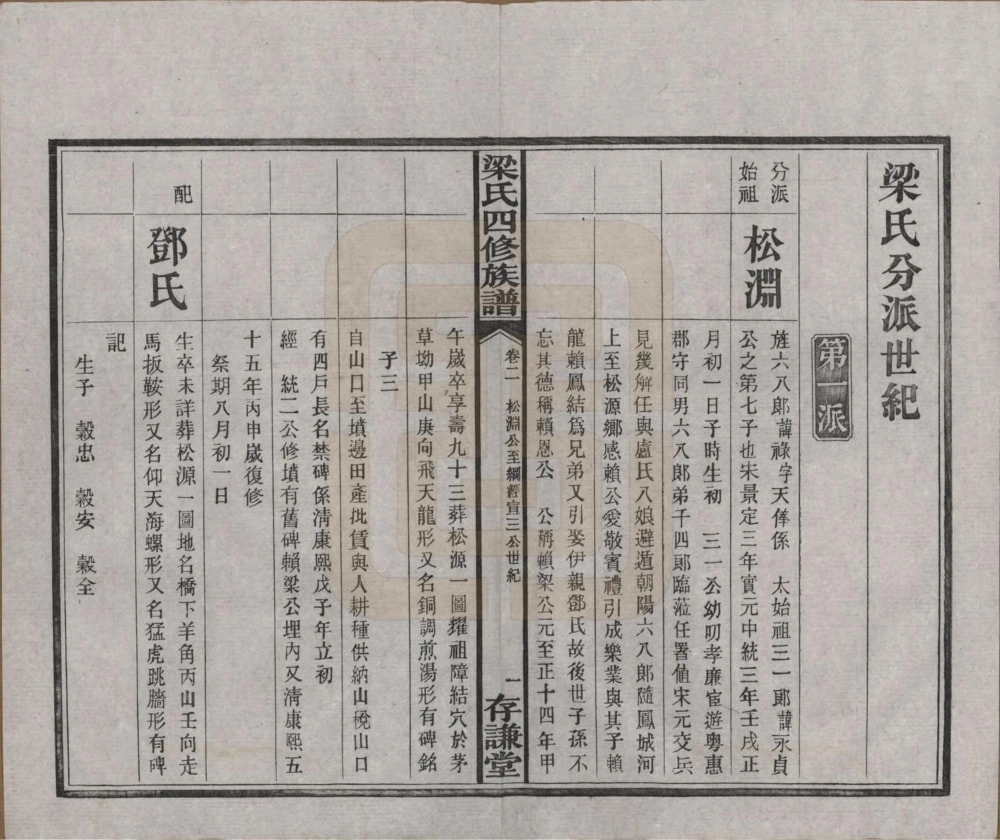 梁氏分派世紀
第一派
分派
始祖
松淵
旌六八郞諱祿字天俸係 太始祖三一郞諱永貞
公之第七子也宋景定三年實元中統三年壬戌正
月初一日子時生初 三一公幼叨孝廉宦遊粤惠
郡守同男六八郞弟千四郞臨蒞任署值宋元交兵
見幾解任與盧氏八娘避遁朝陽六八郞隨鳳城河
上至松源鄉感賴公愛敬賓禮引成樂業與其子賴
龍賴鳳結爲兄弟又引娶伊親鄧氏故後世子孫不
忘其德稱賴恩公 公稱賴梁公元至正十四年甲
梁氏四修族譜
卷二
松淵公至綱經宣三公世紀
一
存謙堂
午歲卒享壽九十三葬松源一圖耀祖障結穴於茅
草坳甲山庚向飛天龍形又名銅調煎湯形有碑銘
子三
自山口至墳邊田產批賃與人耕種供納山稅山口
有四戶長名禁碑係清康熙戊子年立初
經 統二公修墳有舊碑賴梁公埋內又清康熙五
十五年丙申歲復修
祭期八月初一日
配
鄧氏
生卒未詳葬松源一圖地名橋下羊角丙山壬向走
馬扳鞍形又名仰天海螺形又名猛虎跳牆形有碑
記
生子 穀忠 穀安 穀全